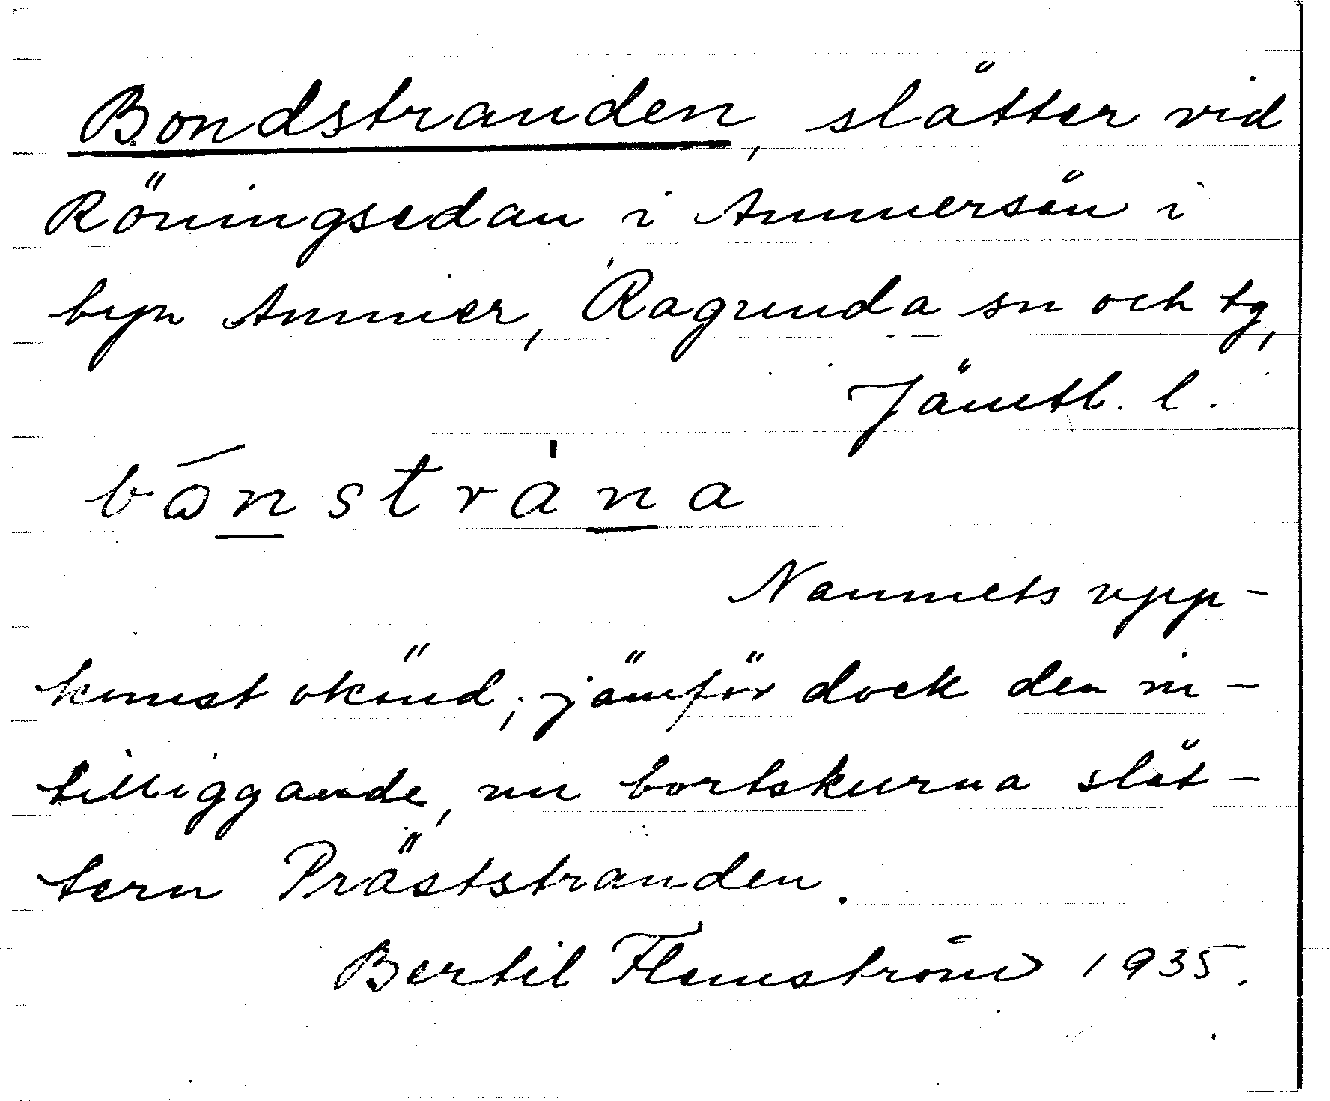 Bondstranden, slåtter vid
Röningsedan i Ammersån i
byn Ammer, Ragunda sn och tg,
Jämtl. l.
bɷ́nstràna
Namnets upp-
komst okänd; jämför dock den in-
tilliggande, nu bortskurna slåt-
tern Präststranden.
Bertil Flemström 1935.